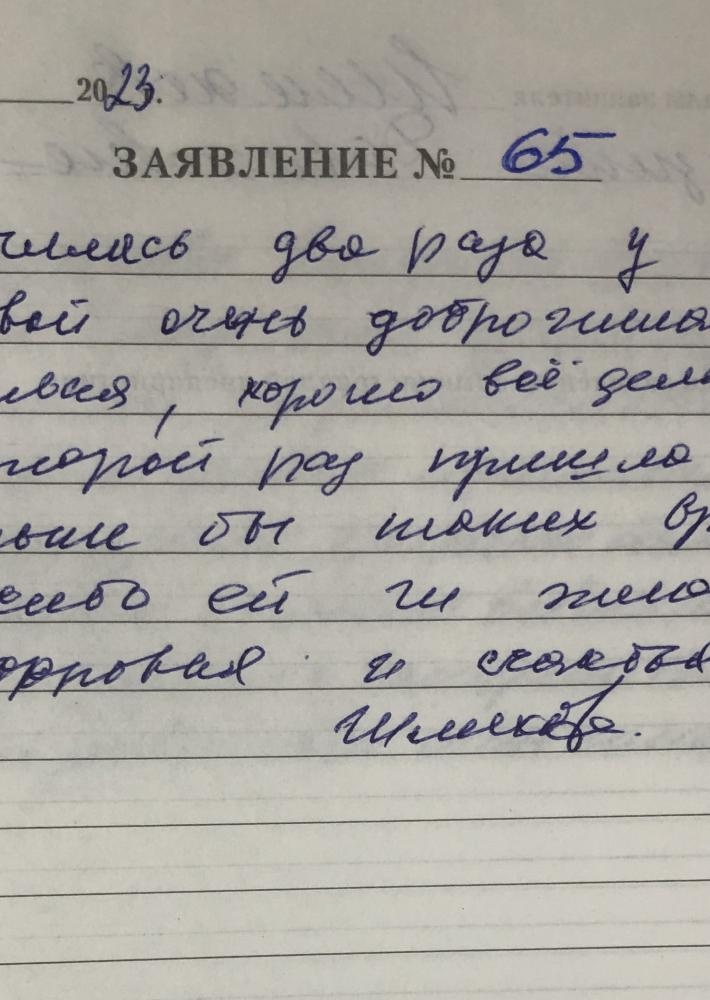 2023.
ЗАЯВЛЕНИЕ № 65
чилась два раза у
вой очень доброжела
льная, хорошо всё дела
торой раз пришла
льше бы таких вр
сибо ей и жела
доровья и счастья